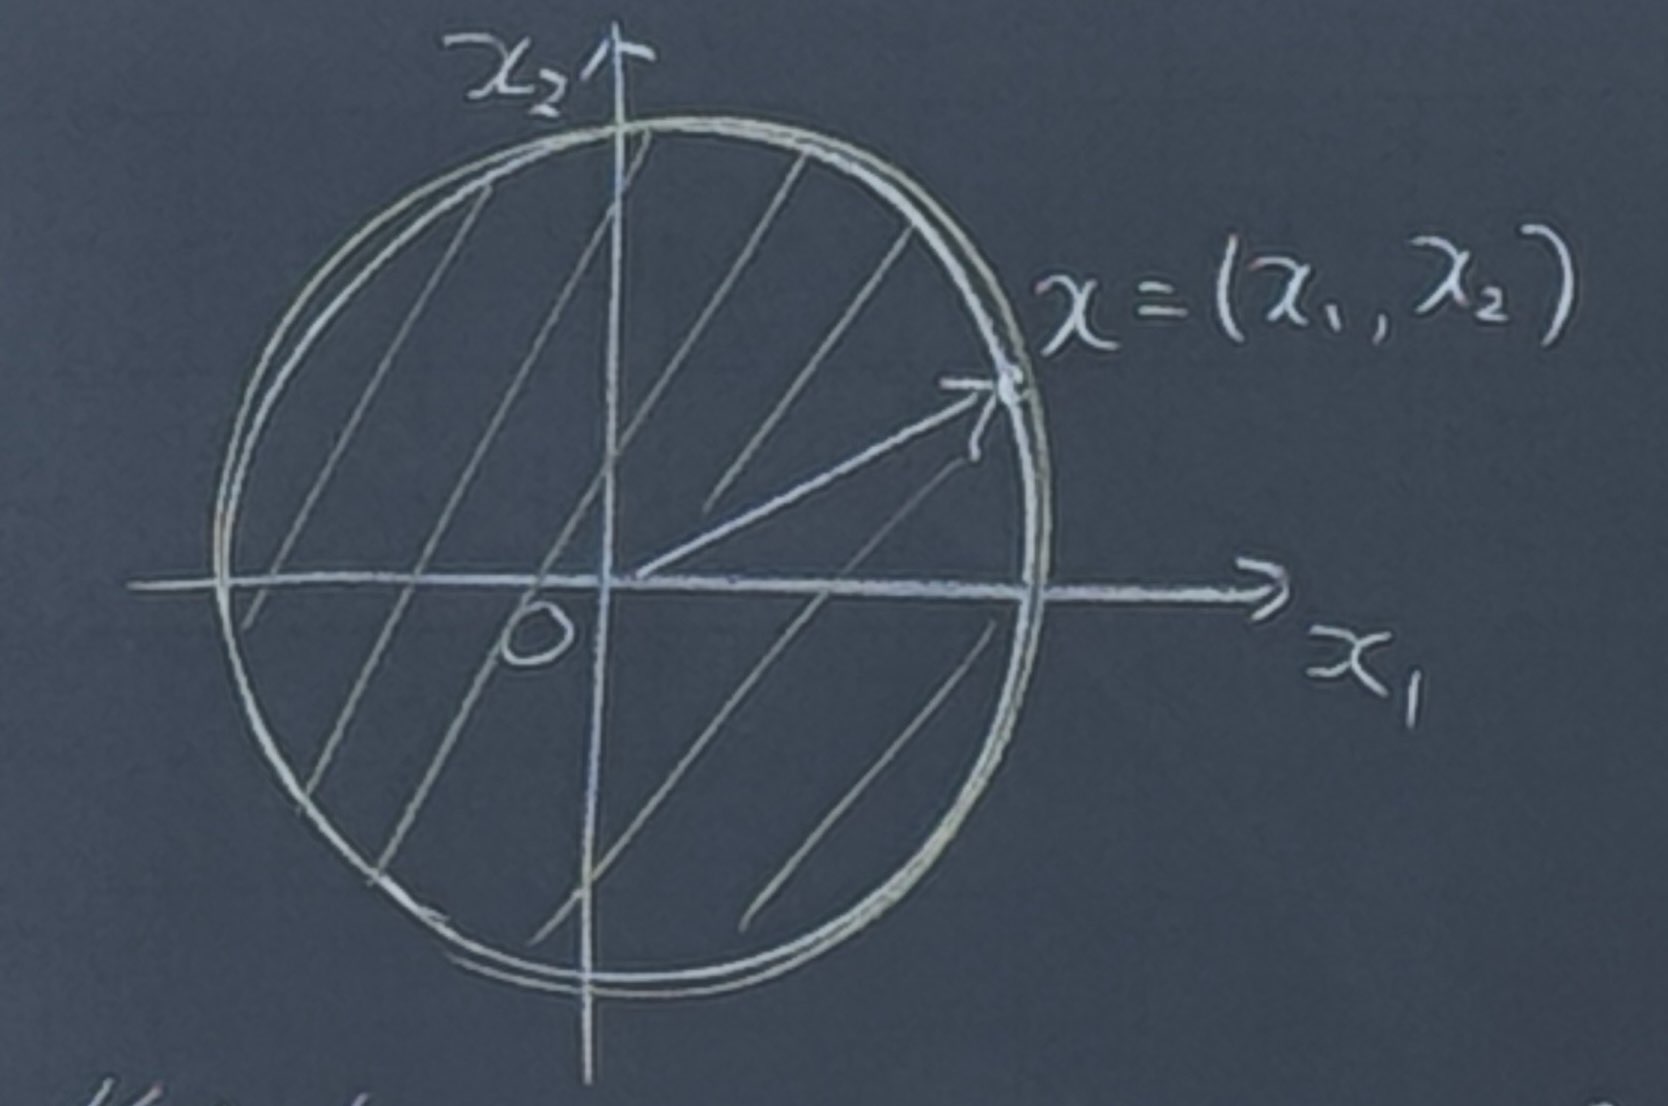 x₂
x = (x₁, x₂)
O
x₁